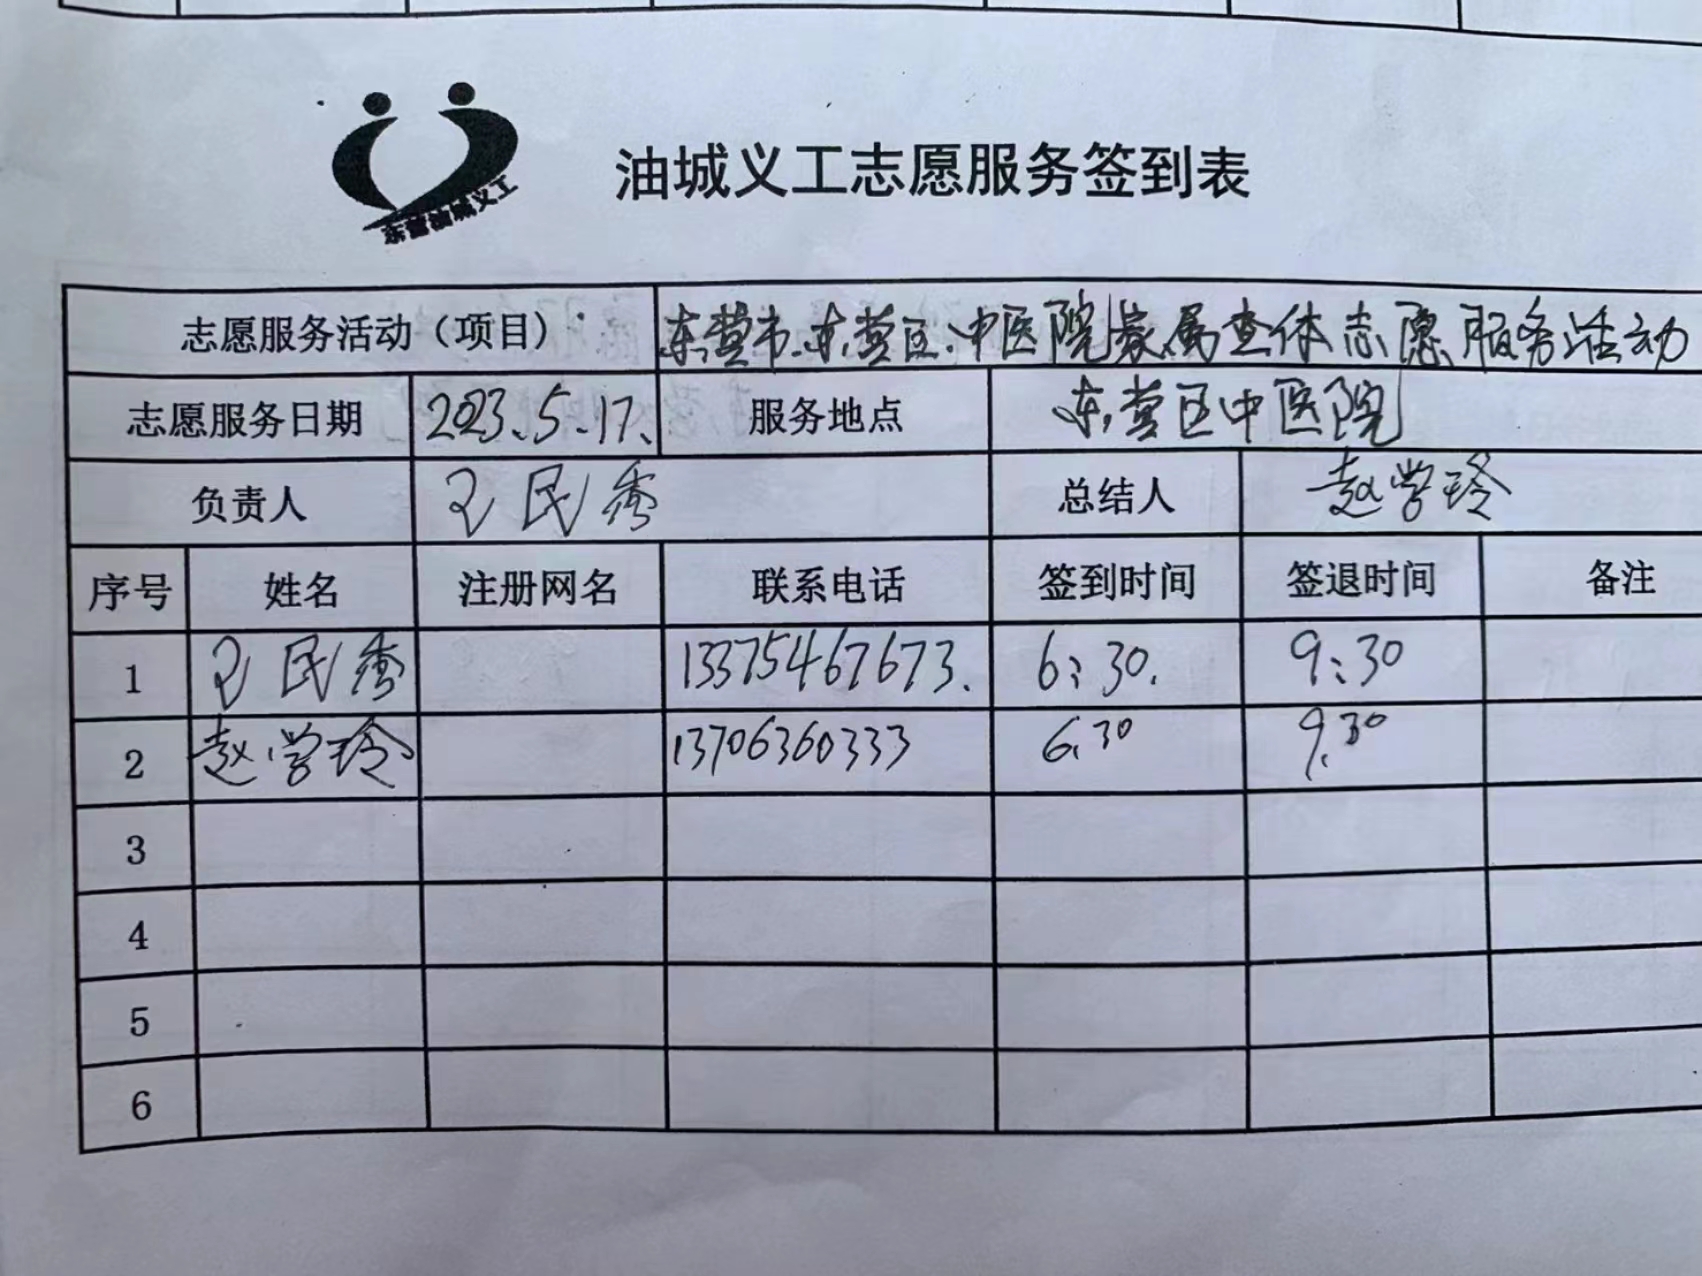 东营油城义工
油城义工志愿服务签到表
志愿服务活动（项目） 东营市东营区中医院家属查体志愿服务活动
志愿服务日期 2023.5.17. 服务地点 东营区中医院
负责人 王民秀 总结人 赵学玲
序号 姓名 注册网名 联系电话 签到时间 签退时间 备注
1 王民秀 13375467673. 6:30. 9:30
2 赵学玲 13706360333 6.30 9.30
3
4
5
6